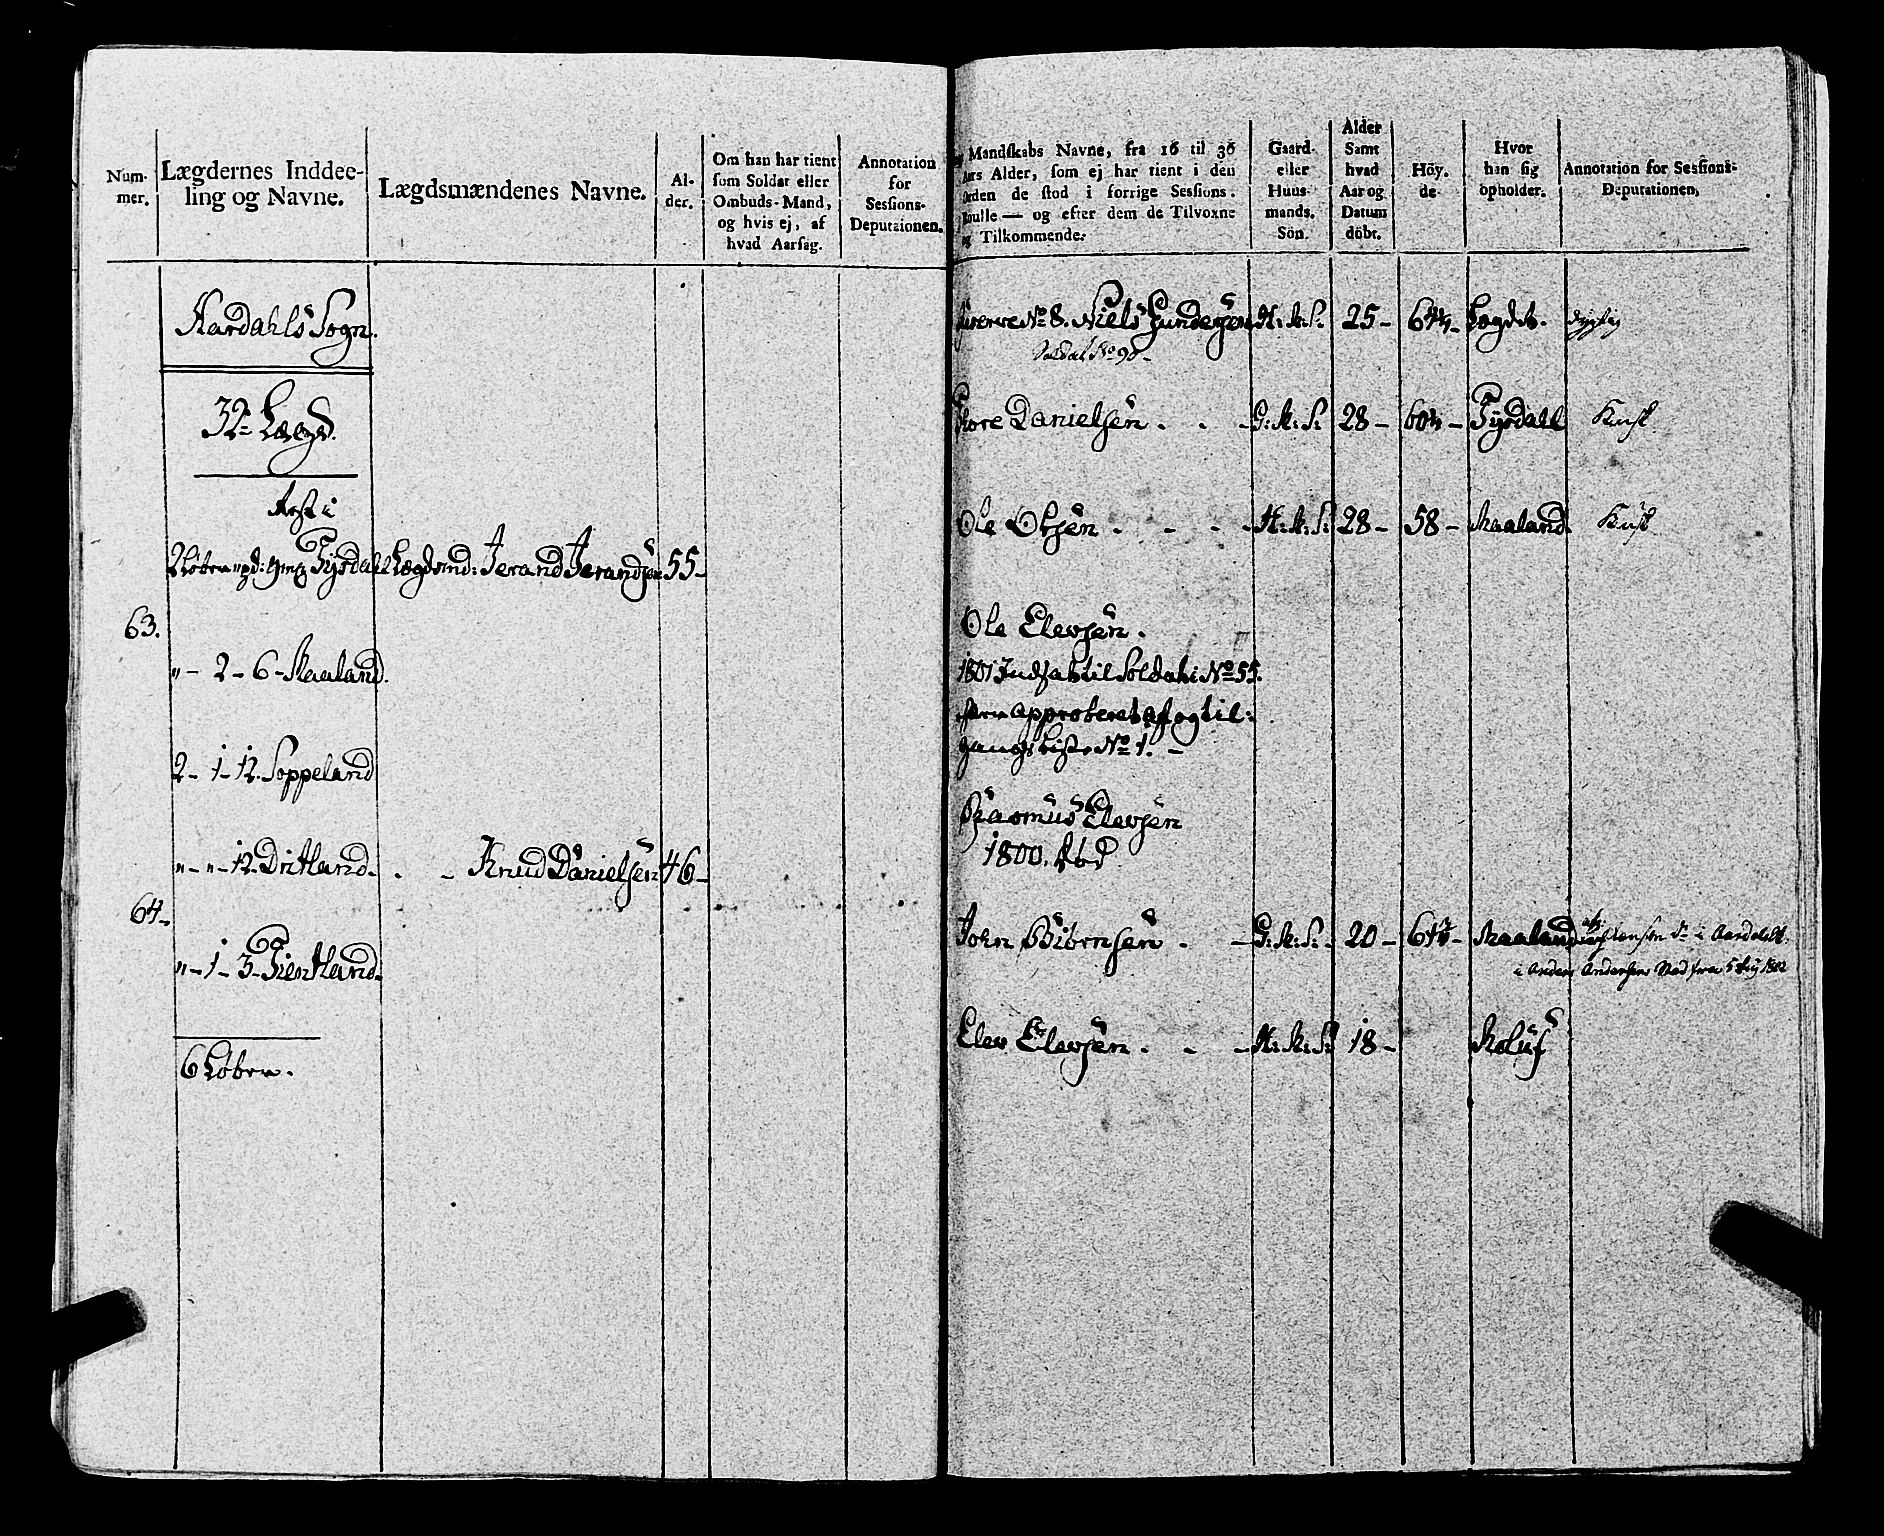 Num-
mer.
Lægdernes Inddee-
ling og Navne.
Lægdsmændenes Navne.
Al-
der.
Om han har tient
som Soldat eller
Ombuds-Mand,
og hvis ej, af
hvad Aarsag.
Annotation
for
Sessions-
Deputaionen.
Aardahls Sogn.
32te Lægd.
2 Løber
Tysdahl
Lægdsmd: Jerand Jerandsen 55-
63.
"- 2 - 6 - Skaaland.
2 - 1 - 12. Soppeland
"- "- 12. Dritland. . - Knud Danielsen 46-
64-
"- 1 - 3 - Tientland.
6 Løber.
Mandskabs Navne, fra 16 til 36
Aars Alder, som ej har tient i den
Orden de stod i forrige Sessions-
Roulle — og efter dem de Tilvoxne
og Tilkommende.
Gaard-
eller
Huus-
mands.
Sön.
Alder
Samt
hvad
Aar og
Datum
döbt.
Höy.
de.
Hvor
han sig
opholder.
Annotation for Sessions-
Deputationen,
Reserve No 8. Niels Gundersen H:M:S: 25- Lægdet. dygtig
Soldat No 90-
Thore Danielsen . . - G:M:S: 28- Tysdall
Ole Olsen . - . - H:M:S: 28- 58- Skaaland
Ole Elevsen.
1801 Indsat til Soldat i No 55.
approberet Af og til:
gangs Liste No 1. -
Rasmus Elevsen
1800. død
John Biörnsen . - G:M:S:- 20- Skaaland
i Anders Andersens Sted fra
Elev Elevsen . - - H:M:S: 18-